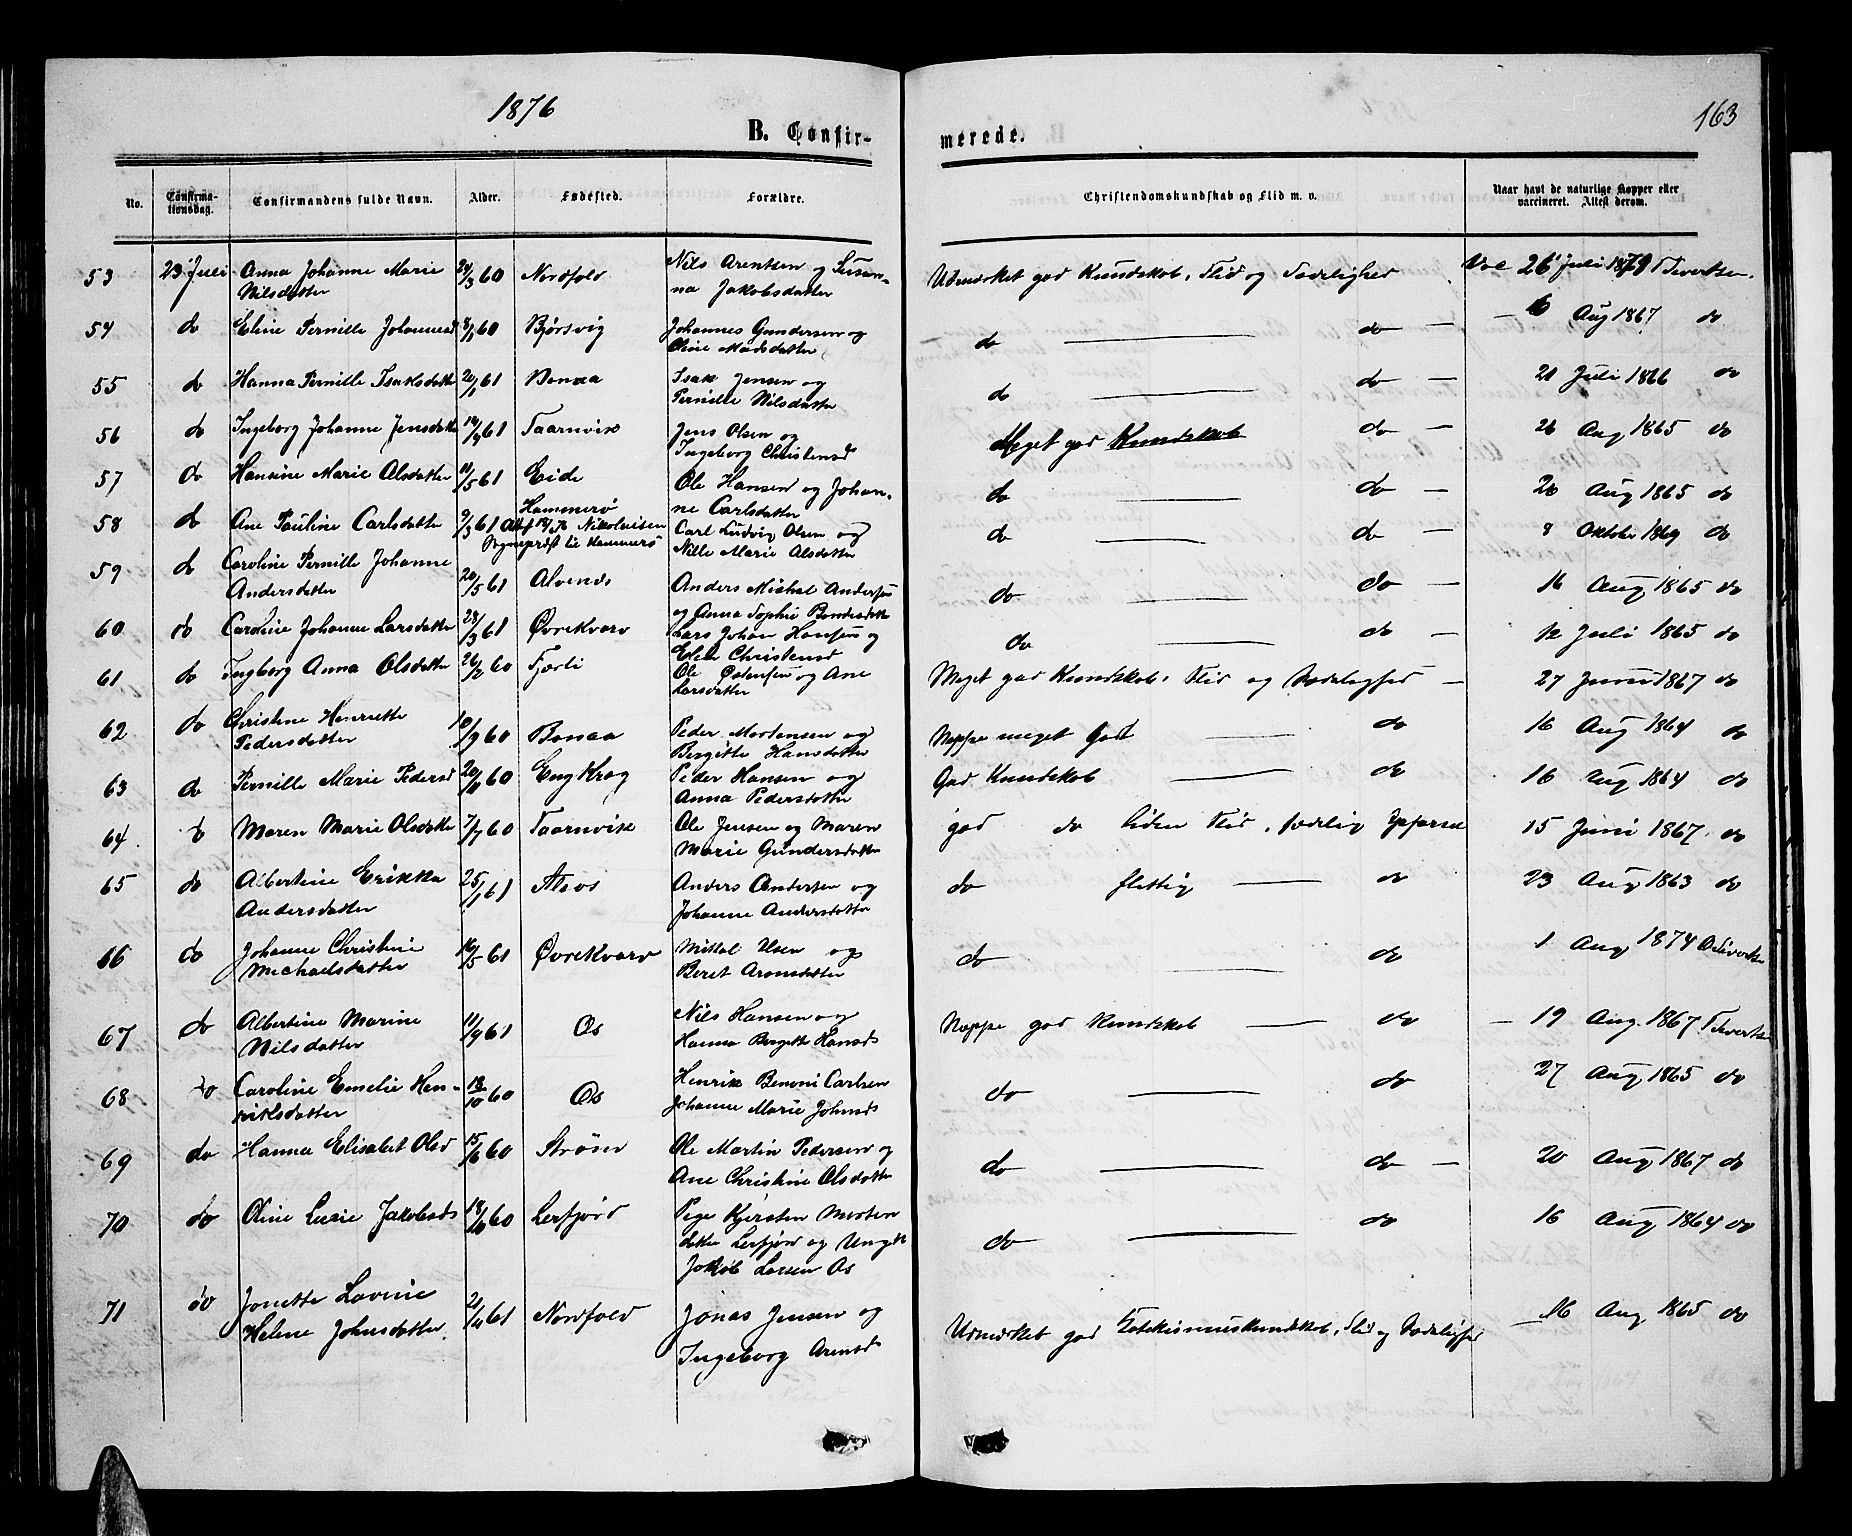 1876
163
B. Confir-
merede.
No.
Confirma-
tionsdag.
Confirmandens fulde Navn.
Alder.
Fødested.
Forældre.
Christendomskundskab og Flid m. v.
Naar havt de naturlige Kopper eller
vaccineret. Attest derom.
53 23 Juli Anna Johanne Marie 24/3 60 Nordfold Nils Arentsen og Susan-
Nilsdatter na Jakobsdatter Udmerket god Kundskab, Flid og Sædelighed Vac 26 Juli
54 do Eline Pernille Johannesd 60 Bjørsvig Johannes Gundersen og
Oline Madsdatter do do — 6 Aug 1867 do
55 do Hanna Pernille Isaksdatter 20/1 61 Bonaa Isak Jensen og
Pernille Nilsdatter do do — 21 Juli 1866 do
56 do Ingeborg Johanne Jensdatter 61 Taarnvik Jens Olsen og
Ingeborg Christensd Meget god Kundskab do — 26 Aug 1865 do
57 do Hansine Marie Olsdatter 11/5 61 Eide Ole Hansen og Johan-
ne Carlsdatter do do — 20 Aug 1865 do
58 do Ane Pauline Carlsdatter 9/3 61 Hammerø
Nikolaisen
Sognepræst til Hammerø
Carl Ludvig Olsen og
Nille Marie Olsdatter do do — 8 Oktober 1869 do
59 do Caroline Pernille Johanne
Andersdatter 20/5 61 Alvenes Anders Michal Andersen
og Anna Sophie do do — 16 Aug 1865 do
60 do Caroline Johanne Larsdatter 28/3 61 Øvrekvarv Lars Johan Hansen og
Elen Christensd do do — 12 Juli 1865 do
61 do Ingborg Anna Olsdatter 26/2 60 Færli Ole Østensen og Ane
Larsdatter Meget god Kundskab, Flid og Sædelighed — 27 Juni 1867 do
62 do Christine Henriette
Pedersdatter 10/9 60 Bonaa Peder Mortensen og
Bergitte Hansdatter Neppe meget God do 16 Aug 1864 do
63 do Pernille Marie Pedersd 20/11 60 Engkrog Peder Hansen og
Anna Pedersdatter God Kundskab do 16 Aug 1864 do
64 do Maren Marie Olsdatter 7/7 60 Taarnvik Ole Jensen og Maren
Marie Gundersdatter god do liden Flid, sædelig Opførsel 15 Juni 1867 do
65 do Albertine Erikka
Andersdatter 25/1 61 Anders Andersen og
Johanne Andersdatter do flittig do 23 Aug 1863 do
66 do Johanne Christine
Michaelsdatter 16/5 61 Øvrekvarv Mikkal Olsen og
Beret Aronsdatter do do 1 Aug 1874
67 do Albertine Marine
Nilsdatter 11/9 61 Os Nils Hansen og
Hanna Bergitte Hansd Neppe god Kundskab do — 19 Aug. 1867
68 do Caroline Emelie Hen-
riksdatter 13/10 60 Os Henrik Benoni Carlsen
Johanne Marie Johnsd do do 27 Aug 1865 do
69 do Hanna Elisabet Olsd 15/6 60 Strøm Ole Martin Pedersen og
Ane Christine Olsdatter do do — 20 Aug 1867 do
70 do Oline Lucie Jakobsd 60 Leifjord Pige Kjersten Morten
datter Leifjord og Ungk
Jakob Larsen Os do do 16 Aug 1864 do
71 do Jonette Lovine
Helene Johnsdatter 21/4 61 Nordfold Jonas Jensen og
Ingeborg Arensd Udmerket god Katekismuskundskab, Flid og Sædelighed — 16 Aug 1865 do